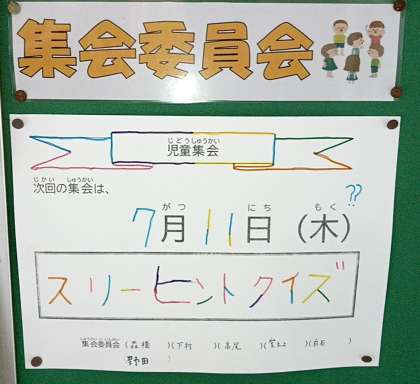 集会委員会
じどうしゅうかい
児童集会
じかい しゅうかい
次回の集会は、
??
がつ にち もく
7月11日（木）
スリーヒントクイズ
しゅうかいいいんかい
集会委員会 ( )(下村 )(高尾 )( )(白石 )
(野田 )